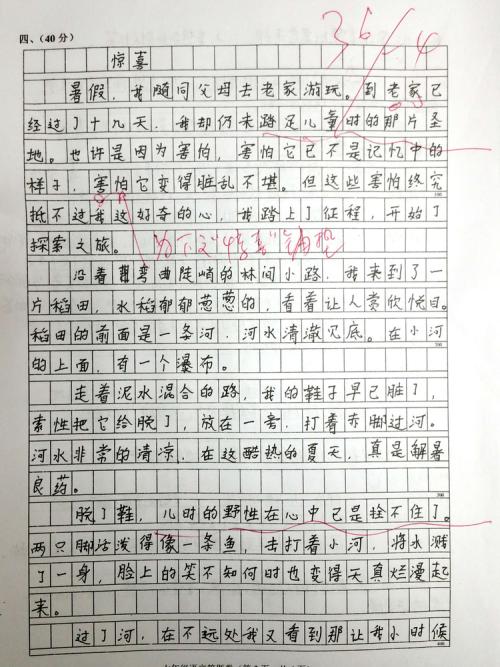 四、(40分)
36/4
惊喜
暑假，我随同父母去老家游玩。到老家已
经过了十九天，我却仍未踏足儿童时的那片圣
地。也许是因为害怕，害怕它已不是记忆中的
样子，害怕它变得脏乱不堪。但这些害怕终究
抵不过我这好奇的心，我踏上了征程，开始了
探索之旅。
为下文"惊喜"铺垫
沿着弯曲陡峭的林间小路，我来到了一
片稻田，水稻郁郁葱葱的，看着让人赏欣悦目。
稻田的前面是一条河，河水清澈见底。在小河
的上面，有一个瀑布。
走着泥水混合的路，我的鞋子早已脏了，
索性把它给脱了，放在一旁，打着赤脚过河。
河水非常的清凉，在这酷热的夏天，真是解暑
良药。
脱了鞋，儿时的野性在心中已是拴不住了。
两只脚活泼得像一条鱼，击打着小河，将水溅
了一身，脸上的笑不知何时也变得天真烂漫起
来。
过了河，在不远处我又看到那让我小时候